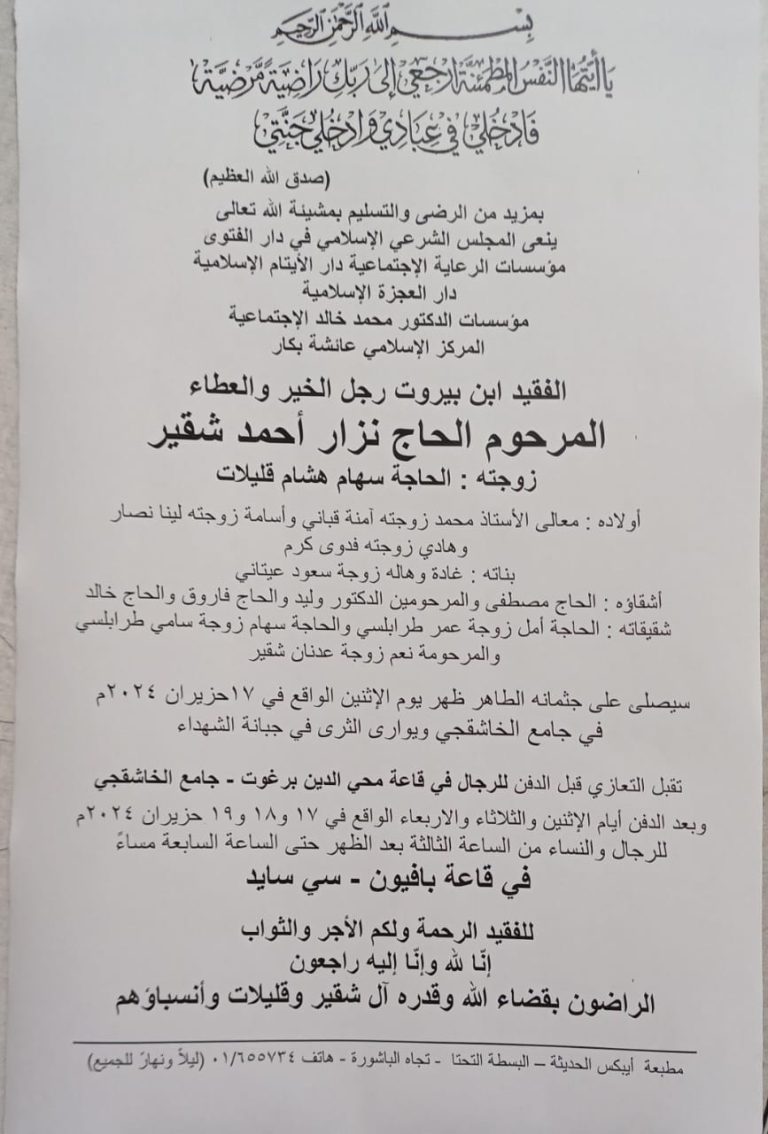 بِسْمِ اللَّهِ الرَّحْمَٰنِ الرَّحِيمِ
يَا أَيَّتُهَا النَّفْسُ الْمُطْمَئِنَّةُ ارْجِعِي إِلَى رَبِّكِ رَاضِيَةً مَّرْضِيَّةً
فَادْخُلِي فِي عِبَادِي وَادْخُلِي جَنَّتِي
(صدق الله العظيم)
بمزيد من الرضى والتسليم بمشيئة الله تعالى
ينعى المجلس الشرعي الإسلامي في دار الفتوى
مؤسسات الرعاية الإجتماعية دار الأيتام الإسلامية
دار العجزة الإسلامية
مؤسسات الدكتور محمد خالد الإجتماعية
المركز الإسلامي عائشة بكار
الفقيد ابن بيروت رجل الخير والعطاء
المرحوم الحاج نزار أحمد شقير
زوجته : الحاجة سهام هشام قليلات
أولاده : معالى الأستاذ محمد زوجته آمنة قباني وأسامة زوجته لينا نصار
وهادي زوجته فدوى كرم
بناته : غادة وهاله زوجة سعود عيتاني
أشقاؤه : الحاج مصطفى والمرحومين الدكتور وليد والحاج فاروق والحاج خالد
شقيقاته : الحاجة أمل زوجة عمر طرابلسي والحاجة سهام زوجة سامي طرابلسي
والمرحومة نعم زوجة عدنان شقير
سيصلى على جثمانه الطاهر ظهر يوم الإثنين الواقع في ١٧حزيران ٢٠٢٤م
في جامع الخاشقجي ويوارى الثرى في جبانة الشهداء
تقبل التعازي قبل الدفن للرجال في قاعة محي الدين برغوت - جامع الخاشقجي
وبعد الدفن أيام الإثنين والثلاثاء والاربعاء الواقع في ١٧ و١٨ و١٩ حزيران ٢٠٢٤م
للرجال والنساء من الساعة الثالثة بعد الظهر حتى الساعة السابعة مساءً
في قاعة بافيون - سي سايد
للفقيد الرحمة ولكم الأجر والثواب
إنّا لله وإنّا إليه راجعون
الراضون بقضاء الله وقدره آل شقير وقليلات وأنسباؤهم
مطبعة أيبكس الحديثة – البسطة التحتا - تجاه الباشورة - هاتف ٠١/٦٥٥٧٣٤ (ليلاً ونهارً للجميع)